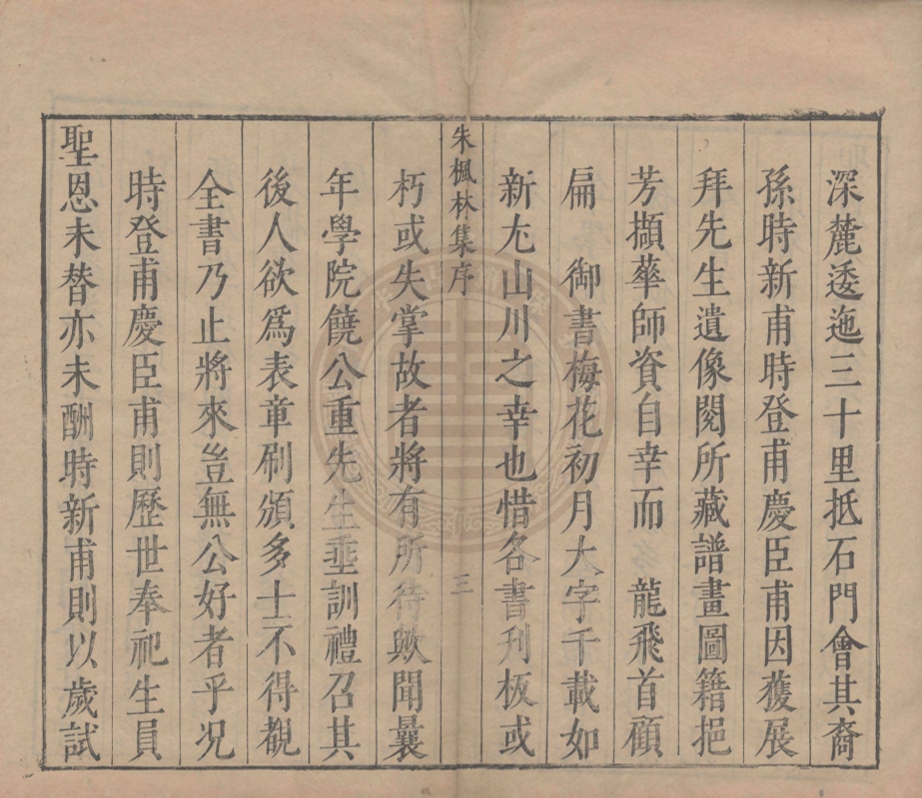 深麓逶迤三十里抵石門會其裔
孫時新甫時登甫慶臣甫因獲展
拜先生遺像閱所藏譜畫圖籍挹
芳擷華師資自幸而 龍飛首顧
扁 御書梅花初月大字千載如
新尤山川之幸也惜各書刊板或
朱楓林集序 三
朽或失掌故者將有所待歟聞曩
年學院饒公重先生埀訓禮召其
後人欲爲表章刷頒多士不得覩
全書乃止將來豈無公好者乎况
時登甫慶臣甫則歷世奉祀生員
聖恩未替亦未酬時新甫則以歲試